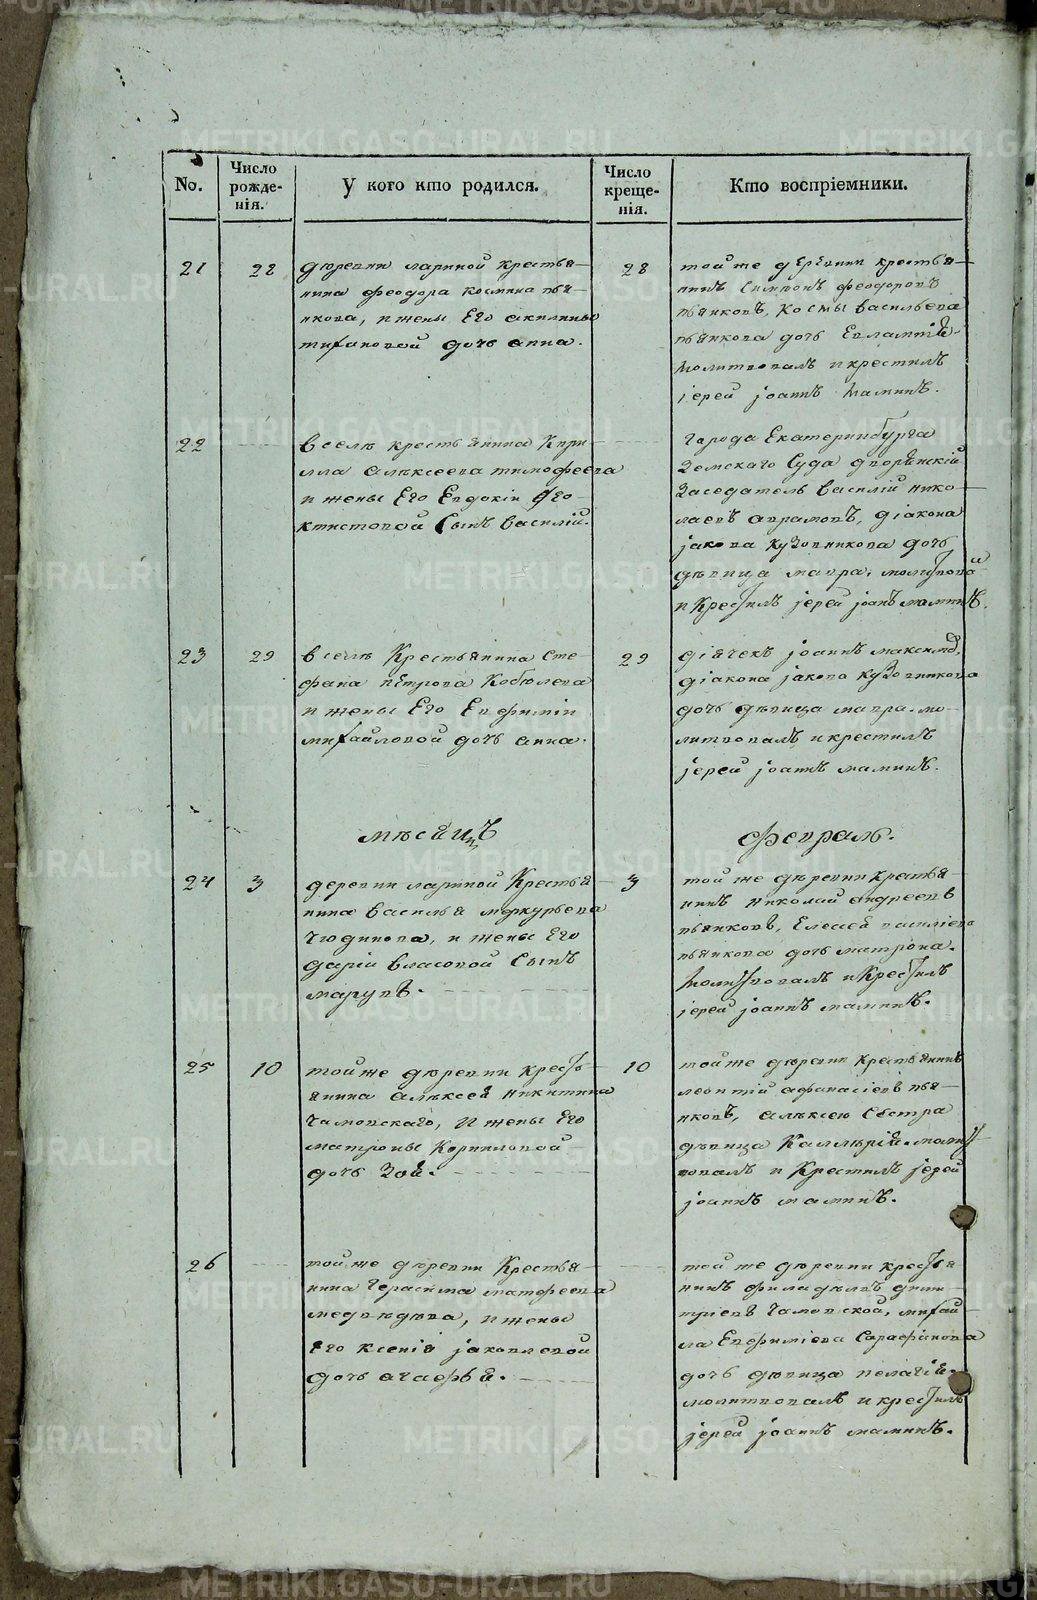 No.
Число рожде-
нія.
У кого кто родился.
Число креще-
нія.
Кто воспріемники.
21
28
деревни лариной крестья-
нина феодора космина пья-
нкова, и жены Его акилины
тифановой дочь анна.
28
той же деревни крестья-
нинъ Симионъ феодоровъ
пьянковъ, Космы васильева
пьянкова дочь Евлампия
Молитвовалъ и крестилъ
іерей іоаннъ Маминъ.
22
в селѣ крестьянина Кири-
лла алѣксеева тимофеева
и жены Его Евдокіи фео-
ктистовой Сынъ василій.
города Екатеринбурга
Земскаго Суда дворянскій
Заседатель василій нико-
лаевъ аврамовъ, діакона
іакова кузовникова дочь
дѣвица мавра. молитвова
и Крестилъ іерей іоанъ маминъ.
23
29
в селѣ Крестьянина Сте-
фана пѣтрова Кобѣлева
и жены Его Евфиміи
михайловой дочь анна.
29
діячекъ іоаннъ максимов,
діакона іакова кузовникова
дочь дѣвица мавра. мо-
литвовалъ и крестилъ
іерей іоаннъ маминъ.
мѣсяцъ
февраль.
24
3
деревни лариной Крестья-
нина василья меркурьева
Чюдинова, и жены Его
дарьи власовой Сынъ
маруфъ.
3
той же дѣревни крестья-
нинъ николай андреевъ
пьянковъ, Елесея василіева
пьянкова дочь матрона.
Молитвовалъ и Крестилъ
іерей іоаннъ маминъ.
25
10
той же дѣревни кресть-
янина алѣксея никитина
Чамовскаго, И жены Его
матроны Корниловой
дочь Зоя.
10
той же дѣревни крестьянинъ
леонтій афанасіевъ пья-
нковъ, алѣксею Сѣстра
дѣвица Каллѣрія. молит
вовалъ и Крестилъ іерей
іоаннъ маминъ.
26
той же дѣревни Крестья-
нина Герасима матфеева
медвѣдева, и жены
Его ксеніи іаковлевой
дочь агафья.
той же дѣревни крестья
нинъ филадѣлъ дими
тріевъ Чамовской, михай
ла Евфиміева Сарафанова
дочь дѣвица пелагія.
молитвовалъ и крестилъ
іерей іоаннъ маминъ.
METRIKI.GASO-URAL.RU